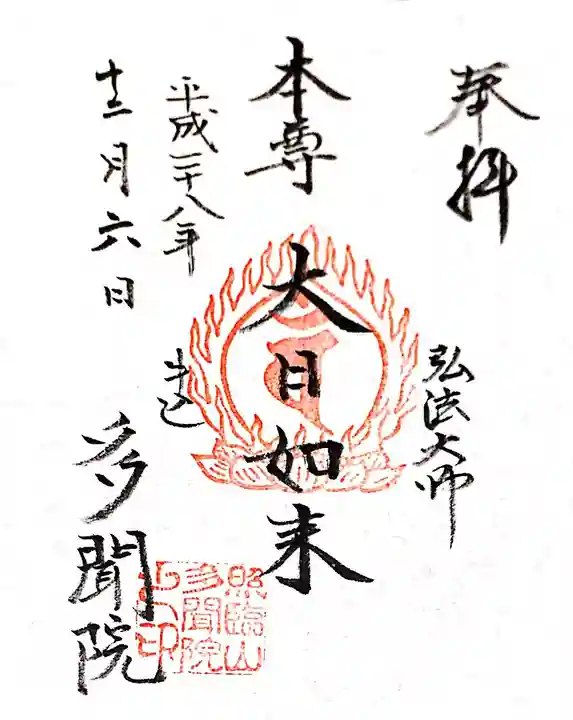 奉拝
弘法大師
本尊 大日如来
平成二十八年
十二月六日
牛込
多聞院
照臨山
多聞院
之印